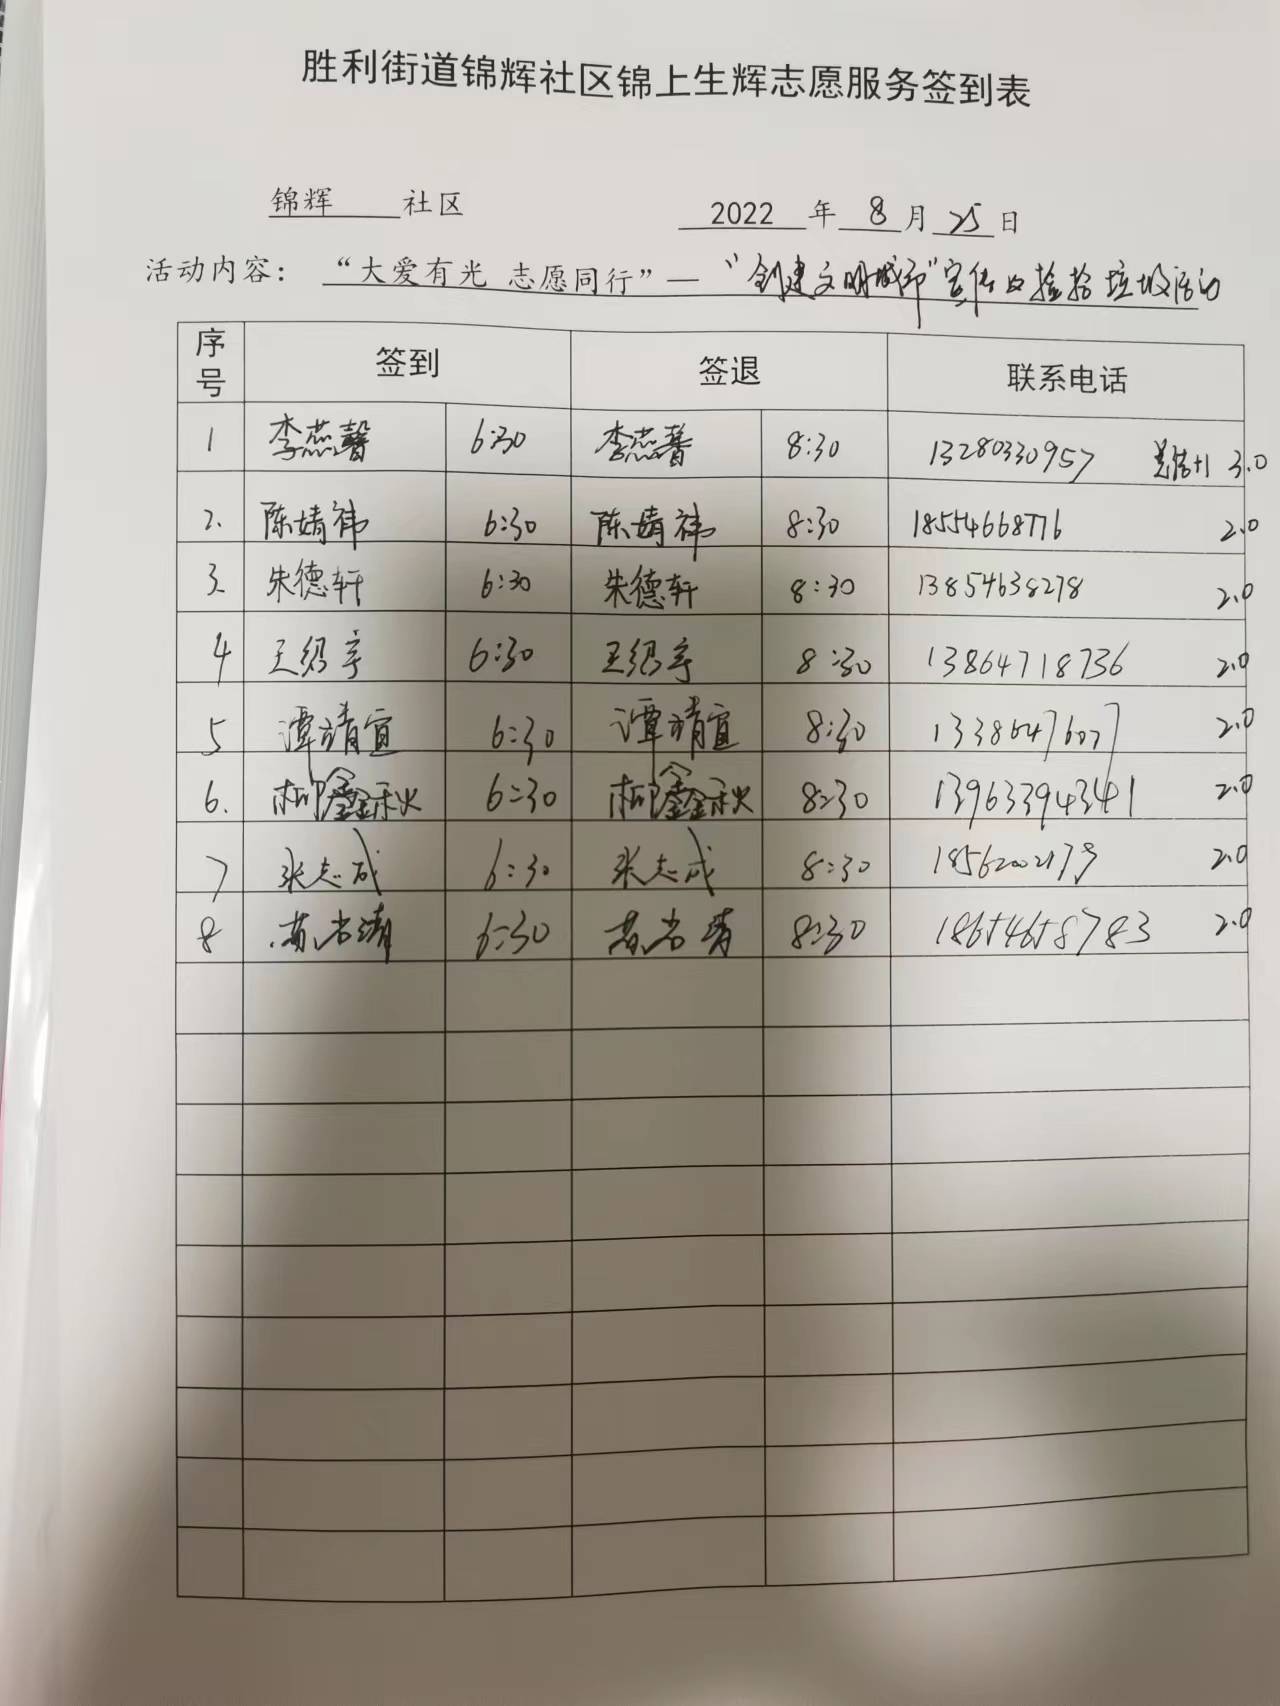 胜利街道锦辉社区锦上生辉志愿服务签到表
锦辉 社区 2022 年 8 月 25 日
活动内容： “大爱有光 志愿同行”— “创建文明城市”宣传及捡拾垃圾活动
序号 签到 签退 联系电话
1 李燕馨 6:30 李燕馨 8:30 13280330957 总结+1 3.0
2. 陈婧祎 6:30 陈婧祎 8:30 18554668776 2.0
3. 朱德轩 6:30 朱德轩 8:30 13854638278 2.0
4 王绍亭 6:30 王绍亭 8:30 13864718736 2.0
5 谭靖宜 6:30 谭靖宜 8:30 2.0
6. 柳鑫秋 6:30 柳鑫秋 8:30 13963394341 2.0
7 张志成 6:30 张志成 8:30 2.0
8 6:30 8:30 18654658783 2.0